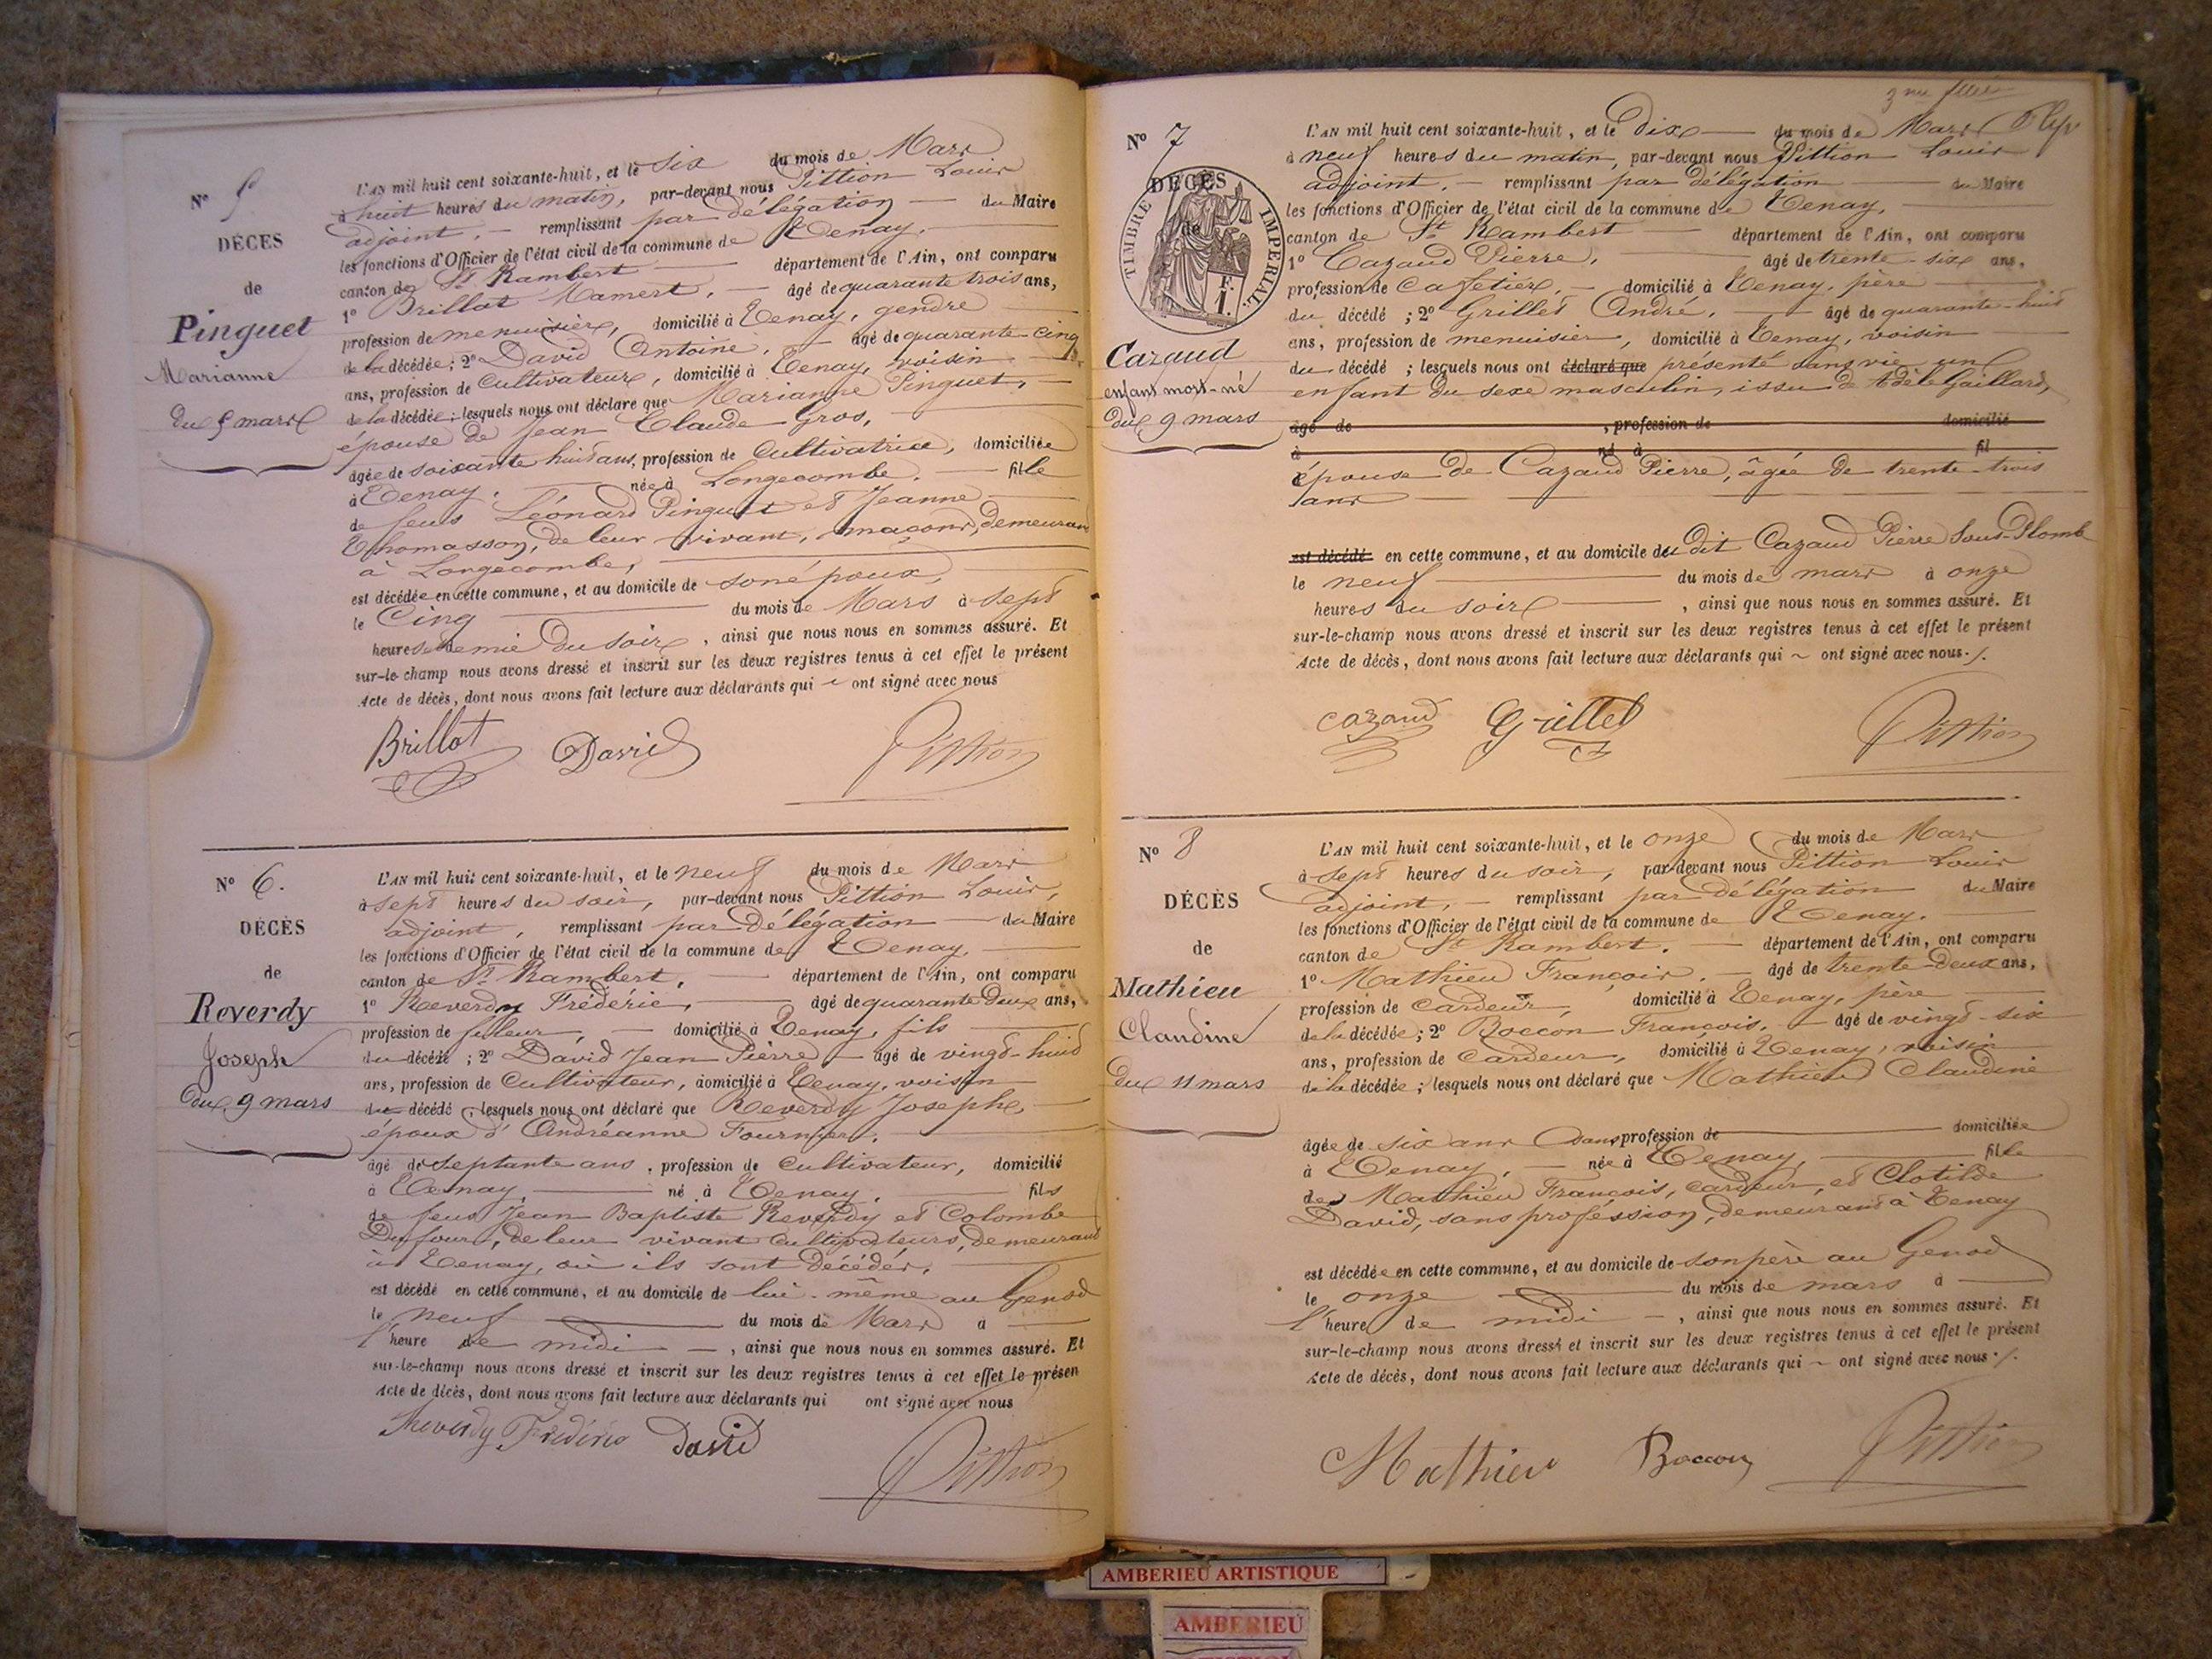 Nº 5
DÉCÈS
de
Pinguet
Marianne
du 5 mars
L'AN mil huit cent soixante-huit, et le six du mois de Mars
à huit heures du matin, par-devant nous Pittion Louis
adjoint, — remplissant par délégation — du Maire
les fonctions d'Officier de l'état civil de la commune de Tenay,
canton de St Rambert — département de l'Ain, ont comparu
1º Brillat Mamert, — âgé de quarante trois ans,
profession de menuisier, domicilié à Tenay, gendre
de la décédée; 2º David Antoine, — âgé de quarante-cinq
ans, profession de Cultivateur, domicilié à Tenay, voisin
de la décédée; lesquels nous ont déclaré que Marianne Pinguet, —
épouse de Jean Claude Gros,
âgée de soixante huit ans, profession de Cultivatrice, domiciliée
à Tenay, — née à Longecombe, — fille
de feus Léonard Pinguet et Jeanne
Thomasson, de leur vivant, maçons, demeurant
à Longecombe,
est décédée en cette commune, et au domicile de son époux,
le Cinq — du mois de Mars à sept
heures et demie du soir, ainsi que nous nous en sommes assuré. Et
sur-le-champ nous avons dressé et inscrit sur les deux registres tenus à cet effet le présent
Acte de décès, dont nous avons fait lecture aux déclarants qui ont signé avec nous
Brillat David Pittion
Nº 6.
DÉCÈS
de
Reverdy
Joseph
du 9 mars
L'AN mil huit cent soixante-huit, et le neuf du mois de Mars
à sept heures du soir, par-devant nous Pittion Louis,
adjoint, remplissant par délégation — du Maire
les fonctions d'Officier de l'état civil de la commune de Tenay,
canton de St Rambert, — département de l'Ain, ont comparu
1º Reverdy Fréderic, — âgé de quarante deux ans,
profession de fileur, — domicilié à Tenay, fils
du décédé; 2º David Jean Pierre — âgé de vingt-huit
ans, profession de Cultivateur, domicilié à Tenay, voisin
du décédé; lesquels nous ont déclaré que Reverdy Joseph,
époux d'Andréanne Fournier,
âgé de septante ans, profession de Cultivateur, domicilié
à Tenay, — né à Tenay, — fils
de feus Jean Baptiste Reverdy et Colombe
Dufour, de leur vivant Cultivateurs, demeurant
à Tenay, où ils sont décédés.
est décédé en cette commune, et au domicile de lui-même au Genod
le neuf — du mois de Mars à —
l'heure de midi —, ainsi que nous nous en sommes assuré. Et
sur-le-champ nous avons dressé et inscrit sur les deux registres tenus à cet effet le présen
Acte de décès, dont nous avons fait lecture aux déclarants qui ont signé avec nous
Reverdy Frédéric David Pittion
Nº 7
DÉCÈS
de
TIMBRE IMPERIAL.
F.
1.
Cazaud
enfant mort-né
du 9 mars
L'AN mil huit cent soixante-huit, et le Dix — du mois de Mars
à neuf heures du matin, par-devant nous Pittion Louis
adjoint, — remplissant par délégation — du Maire
les fonctions d'Officier de l'état civil de la commune de Tenay,
canton de St Rambert — département de l'Ain, ont comparu
1º Cazaud Pierre, — âgé de trente-six ans,
profession de Cafetier, — domicilié à Tenay, père
du décédé; 2º Grillet André, — âgé de quarante-huit
ans, profession de menuisier, domicilié à Tenay, voisin
du décédé; lesquels nous ont déclaré que présenté sans vie un
enfant du sexe masculin, issu de Adèle Gaillard,
âgé de , profession de domicilié
à né à fil
épouse de Cazaud Pierre, âgée de trente-trois
ans —
est décédé en cette commune, et au domicile du dit Cazaud Pierre Sous-Plomb
le neuf — du mois de mars à onze
heures du soir —, ainsi que nous nous en sommes assuré. Et
sur-le-champ nous avons dressé et inscrit sur les deux registres tenus à cet effet le présent
Acte de décès, dont nous avons fait lecture aux déclarants qui ~ ont signé avec nous./.
Cazaud Grillet Pittion
Nº 8
DÉCÈS
de
Mathieu
Claudine
du 11 mars
L'AN mil huit cent soixante-huit, et le onze du mois de Mars
à sept heures du soir, par-devant nous Pittion Louis
adjoint, — remplissant par délégation du Maire
les fonctions d'Officier de l'état civil de la commune de Tenay.
canton de St Rambert. — département de l'Ain, ont comparu
1º Mathieu François, — âgé de trente-deux ans,
profession de Cardeur, domicilié à Tenay, père
de la décédée; 2º Boccon François, — âgé de vingt-six
ans, profession de Cardeur, domicilié à Tenay, voisin
de la décédée; lesquels nous ont déclaré que Mathieu Claudine
âgée de six ans sans profession de — domiciliée
à Tenay, — née à Tenay, — fille
de Mathieu François, Cardeur, et Clotilde
David, sans profession, demeurant à Tenay
est décédée en cette commune, et au domicile de son père au Genod
le onze — du mois de mars à —
l'heure de midi —, ainsi que nous nous en sommes assuré. Et
sur-le-champ nous avons dressé et inscrit sur les deux registres tenus à cet effet le présent
Acte de décès, dont nous avons fait lecture aux déclarants qui ~ ont signé avec nous./.
Mathieu Boccon Pittion
AMBERIEU ARTISTIQUE
AMBERIEU